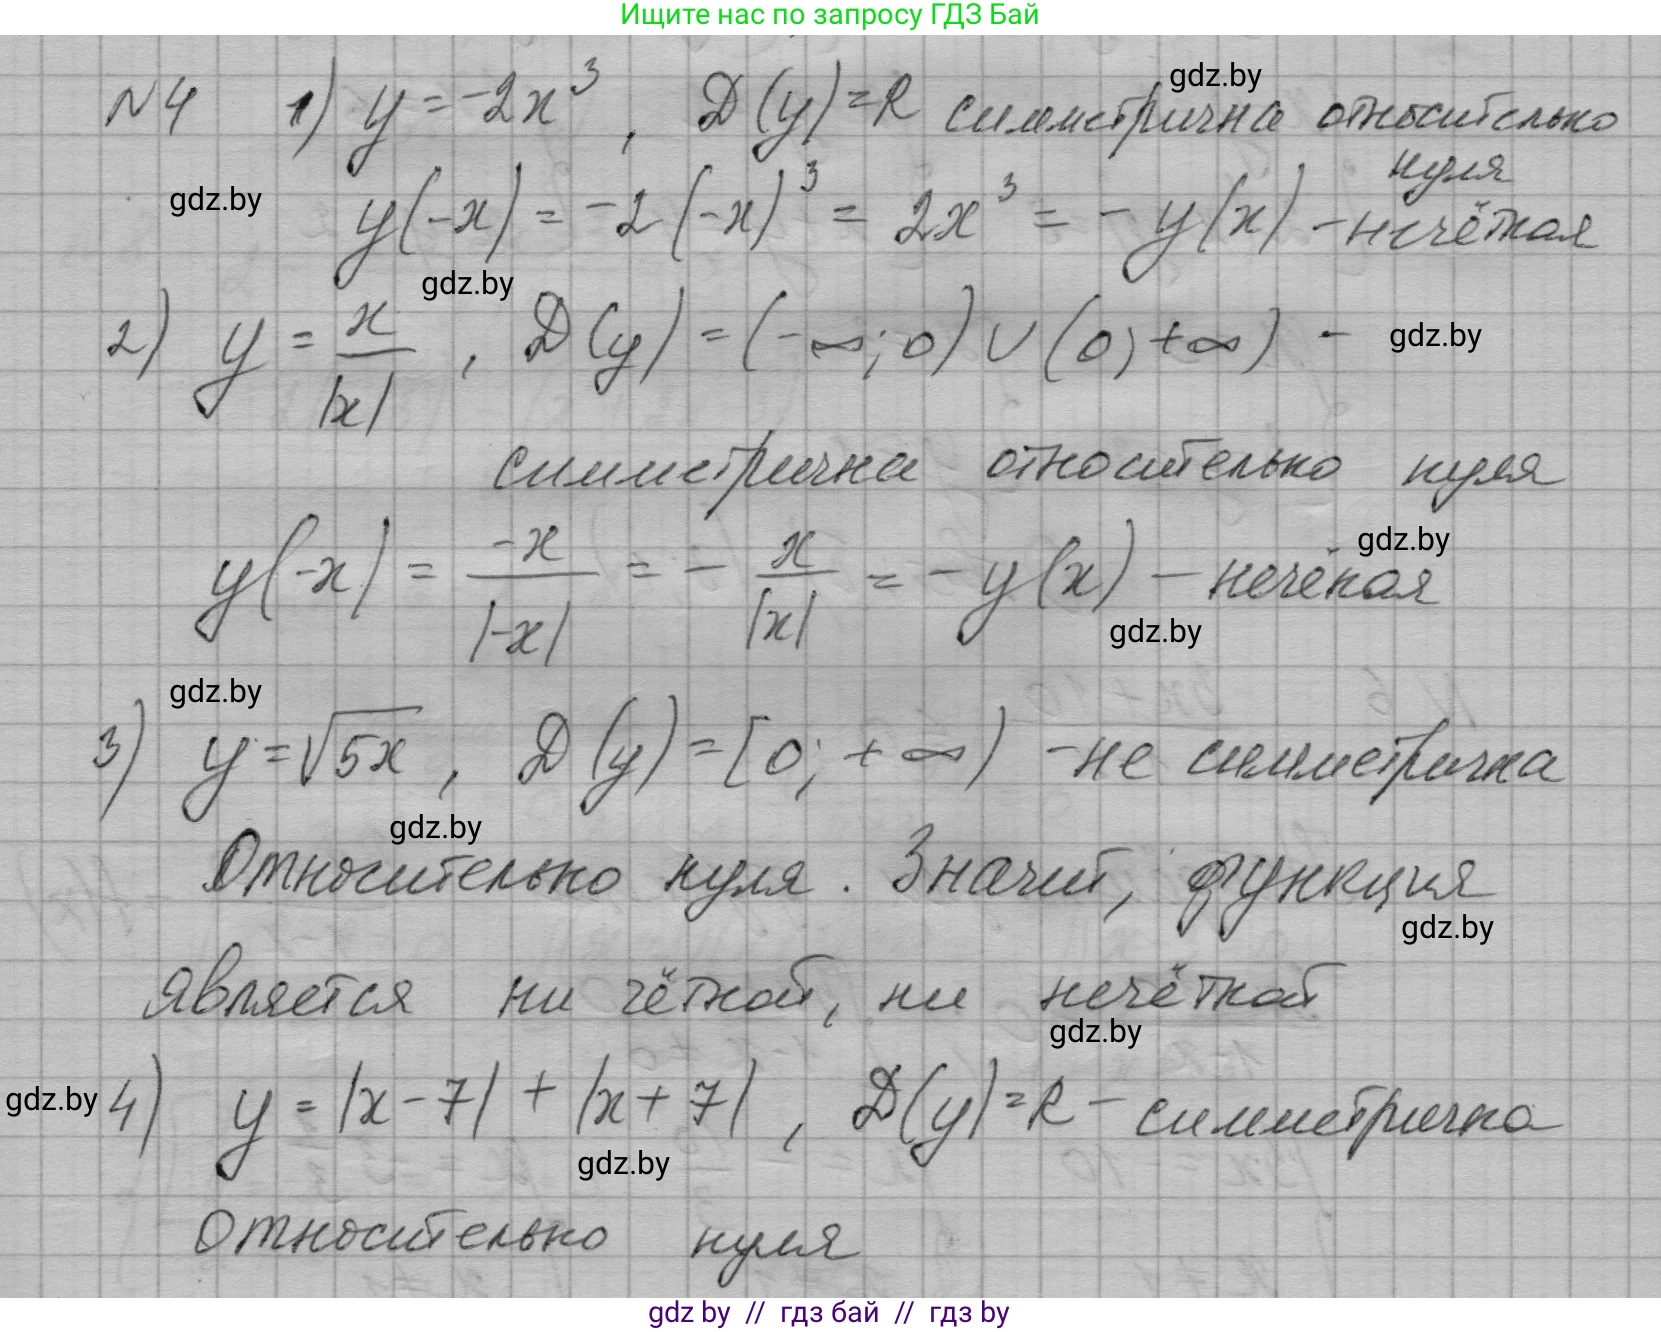 Ищите нас по запросу ГДЗ Бай
gdz.by
N4 1) y = -2x³, D(y)=R симметрична относительно
нуля
gdz.by
y(-x) = -2(-x)³ = 2x³ = -y(x) - нечётная
gdz.by
2) y = x/|x|, D(y) = (-∞; 0) ∪ (0; +∞) -
gdz.by
симметрична относительно нуля
gdz.by
y(-x) = -x/|-x| = - x/|x| = -y(x) - нечётная
gdz.by
gdz.by
3) y = √5x, D(y) = [0; +∞) - не симметрична
gdz.by
Относительно нуля. Значит, функция
gdz.by
является ни чётной, ни нечётной
gdz.by
gdz.by
4) y = |x-7| + |x+7|, D(y)=R - симметрична
gdz.by
Относительно нуля
gdz by // гдз бай // гдз by